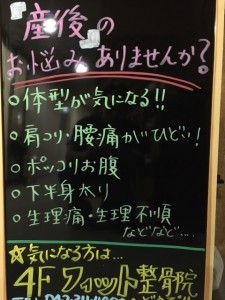 産後の
お悩みありませんか?
○体型が気になる!!
○肩コリ・腰痛がひどい!
○ポッコリお腹
○下半身太り
○生理痛・生理不順
などなど....
☆気になる方は...
4F フィット整骨院